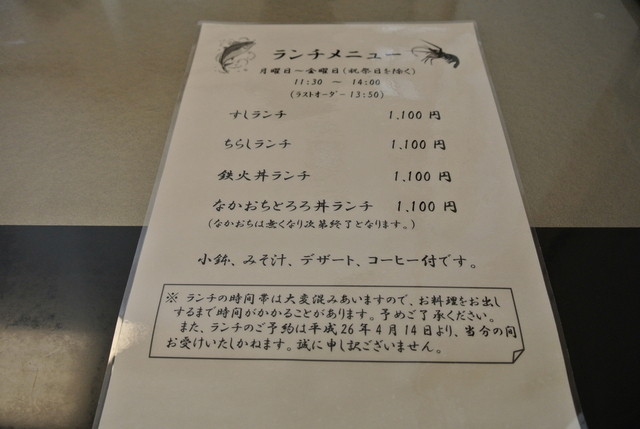 ランチメニュー
月曜日～金曜日(祝祭日を除く)
11:30 ～ 14:00
(ラストオーダー 13:50)
すしランチ 1.100 円
ちらしランチ 1.100 円
鉄火丼ランチ 1.100 円
なかおちとろろ丼ランチ 1.100 円
(なかおちは無くなり次第終了となります。)
小鉢、みそ汁、デザート、コーヒー付です。
※ ランチの時間帯は大変混みあいますので、お料理をお出し
するまで時間がかかることがあります。予めご了承ください。
また、ランチのご予約は平成26年4月14日より、当分の間
お受けいたしかねます。誠に申し訳ございません。